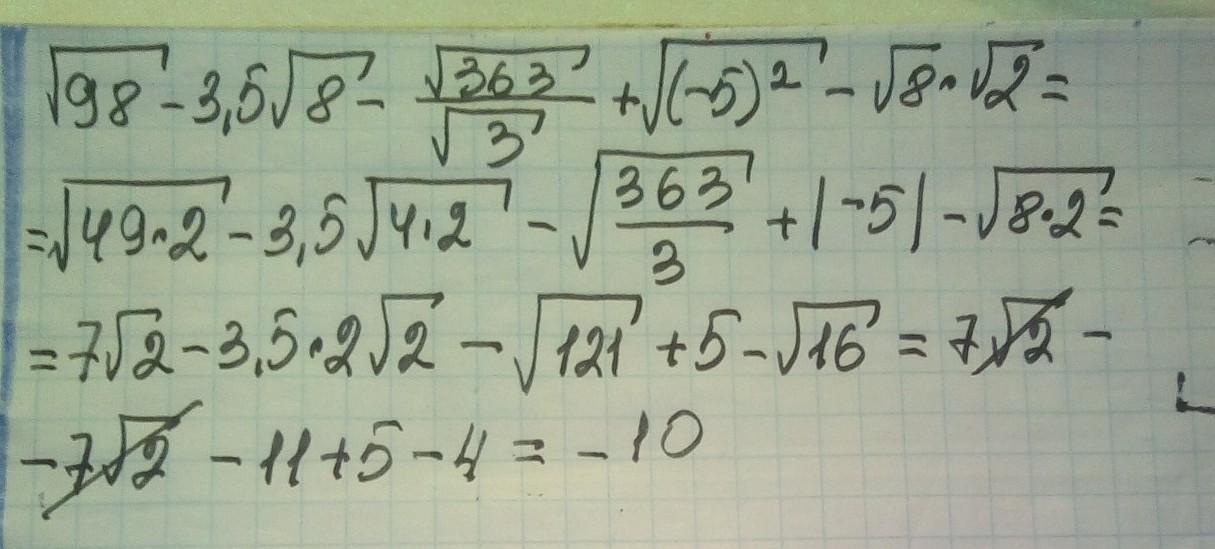 √98 - 3,5√8 - √363/√3 + √(-5)² - √8 · √2 =
= √49·2 - 3,5√4·2 - √363/3 + |-5| - √8·2 =
= 7√2 - 3,5·2√2 - √121 + 5 - √16 = 7√2 -
- 7√2 - 11 + 5 - 4 = - 10